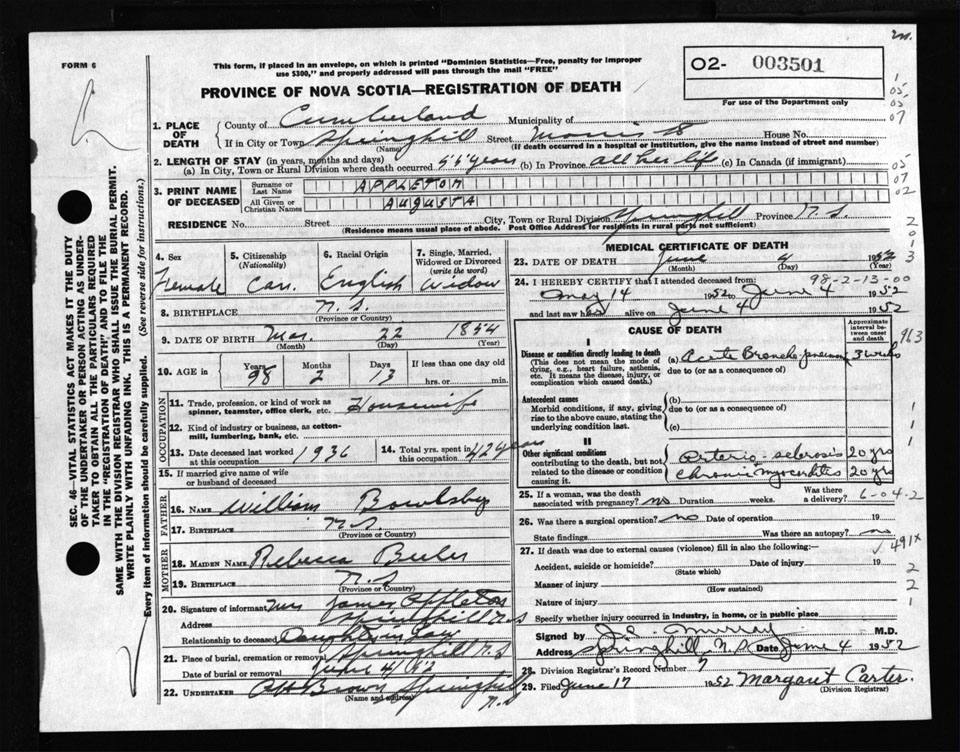 m.
FORM 6
This form, if placed in an envelope, on which is printed "Dominion Statistics—Free, penalty for improper
use $300," and properly addressed will pass through the mail "FREE"
O2- 003501
For use of the Department only
PROVINCE OF NOVA SCOTIA—REGISTRATION OF DEATH
1. PLACE OF DEATH
County of Cumberland Municipality of
If in City or Town Springhill Street Morris St House No.
(Name) (If death occurred in a hospital or institution, give the name instead of street and number)
2. LENGTH OF STAY (in years, months and days)
(a) In City, Town or Rural Division where death occurred 55 years (b) In Province all her life (c) In Canada (if immigrant)
3. PRINT NAME OF DECEASED
Surname or Last Name APPLETON
All Given or Christian Names AUGUSTA
RESIDENCE No. Street City, Town or Rural Division Springhill Province N.S.
(Residence means usual place of abode. Post Office Address for residents in rural parts not sufficient)
SEC. 46—VITAL STATISTICS ACT MAKES IT THE DUTY
OF THE UNDERTAKER OR PERSON ACTING AS UNDER-
TAKER TO OBTAIN ALL THE PARTICULARS REQUIRED
IN THE "REGISTRATION OF DEATH" AND TO FILE THE
SAME WITH THE DIVISION REGISTRAR WHO SHALL ISSUE THE BURIAL PERMIT.
WRITE PLAINLY WITH UNFADING INK. THIS IS A PERMANENT RECORD.
Every item of information should be carefully supplied. (See reverse side for instructions.)
4. Sex Female
5. Citizenship (Nationality) Can.
6. Racial Origin English
7. Single, Married, Widowed or Divorced (write the word) Widow
8. BIRTHPLACE N.S.
(Province or Country)
9. DATE OF BIRTH Mar. 22 1854
(Month) (Day) (Year)
10. AGE in Years 98 Months 2 Days 13 If less than one day old
hrs. or min.
OCCUPATION
11. Trade, profession, or kind of work as
spinner, teamster, office clerk, etc. Housewife
12. Kind of industry or business, as cotton-
mill, lumbering, bank, etc.
13. Date deceased last worked at this occupation 1936
14. Total yrs. spent in this occupation 42 years
15. If married give name of wife
or husband of deceased
FATHER
16. NAME William Bowlsby
17. BIRTHPLACE N.S.
(Province or Country)
MOTHER
18. MAIDEN NAME Rebecca
19. BIRTHPLACE N.S
(Province or Country)
20. Signature of informant Mrs James Appleton
Address Springhill N.S
Relationship to deceased Daughter in law
21. Place of burial, cremation or removal Springhill N.S
Date of burial or removal June 4/52
22. UNDERTAKER Brown Springhill
(Name and address) N.S
MEDICAL CERTIFICATE OF DEATH
23. DATE OF DEATH June 4 1952
(Month) (Day) (Year)
98-2-13-00
24. I HEREBY CERTIFY that I attended deceased from:
May 14 1952 to June 4 1952
and last saw her alive on June 4 1952
CAUSE OF DEATH
Approximate interval between onset and death
I
Disease or condition directly leading to death
(This does not mean the mode of
dying, e.g., heart failure, asthenia,
etc. It means the disease, injury, or
complication which caused death.)
(a) Acute Broncho-pneumonia 3 weeks
due to (or as a consequence of)
Antecedent causes
Morbid conditions, if any, giving
rise to the above cause, stating the
underlying condition last.
(b)
due to (or as a consequence of)
(c)
II
Other significant conditions
contributing to the death, but not
related to the disease or condition
causing it.
Arterio-sclerosis 20 yrs
Chronic myocarditis 20 yrs
25. If a woman, was the death
associated with pregnancy? no Duration weeks. Was there a delivery? 6-04-2
26. Was there a surgical operation? no Date of operation 19
State findings Was there an autopsy? no
27. If death was due to external causes (violence) fill in also the following:
491x
Accident, suicide or homicide? Date of injury 19
(State which)
Manner of injury
(How sustained)
Nature of injury
Specify whether injury occurred in industry, in home, or in public place
Signed by J. C. Murray M.D.
Address Springhill, N.S. Date June 4 1952
28. Division Registrar's Record Number 7
29. Filed June 17 1952 Margaret Carter.
(Division Registrar)
1
05
05
07
05
07
02
2
0
1
3
963
1
1
1
2
2
1